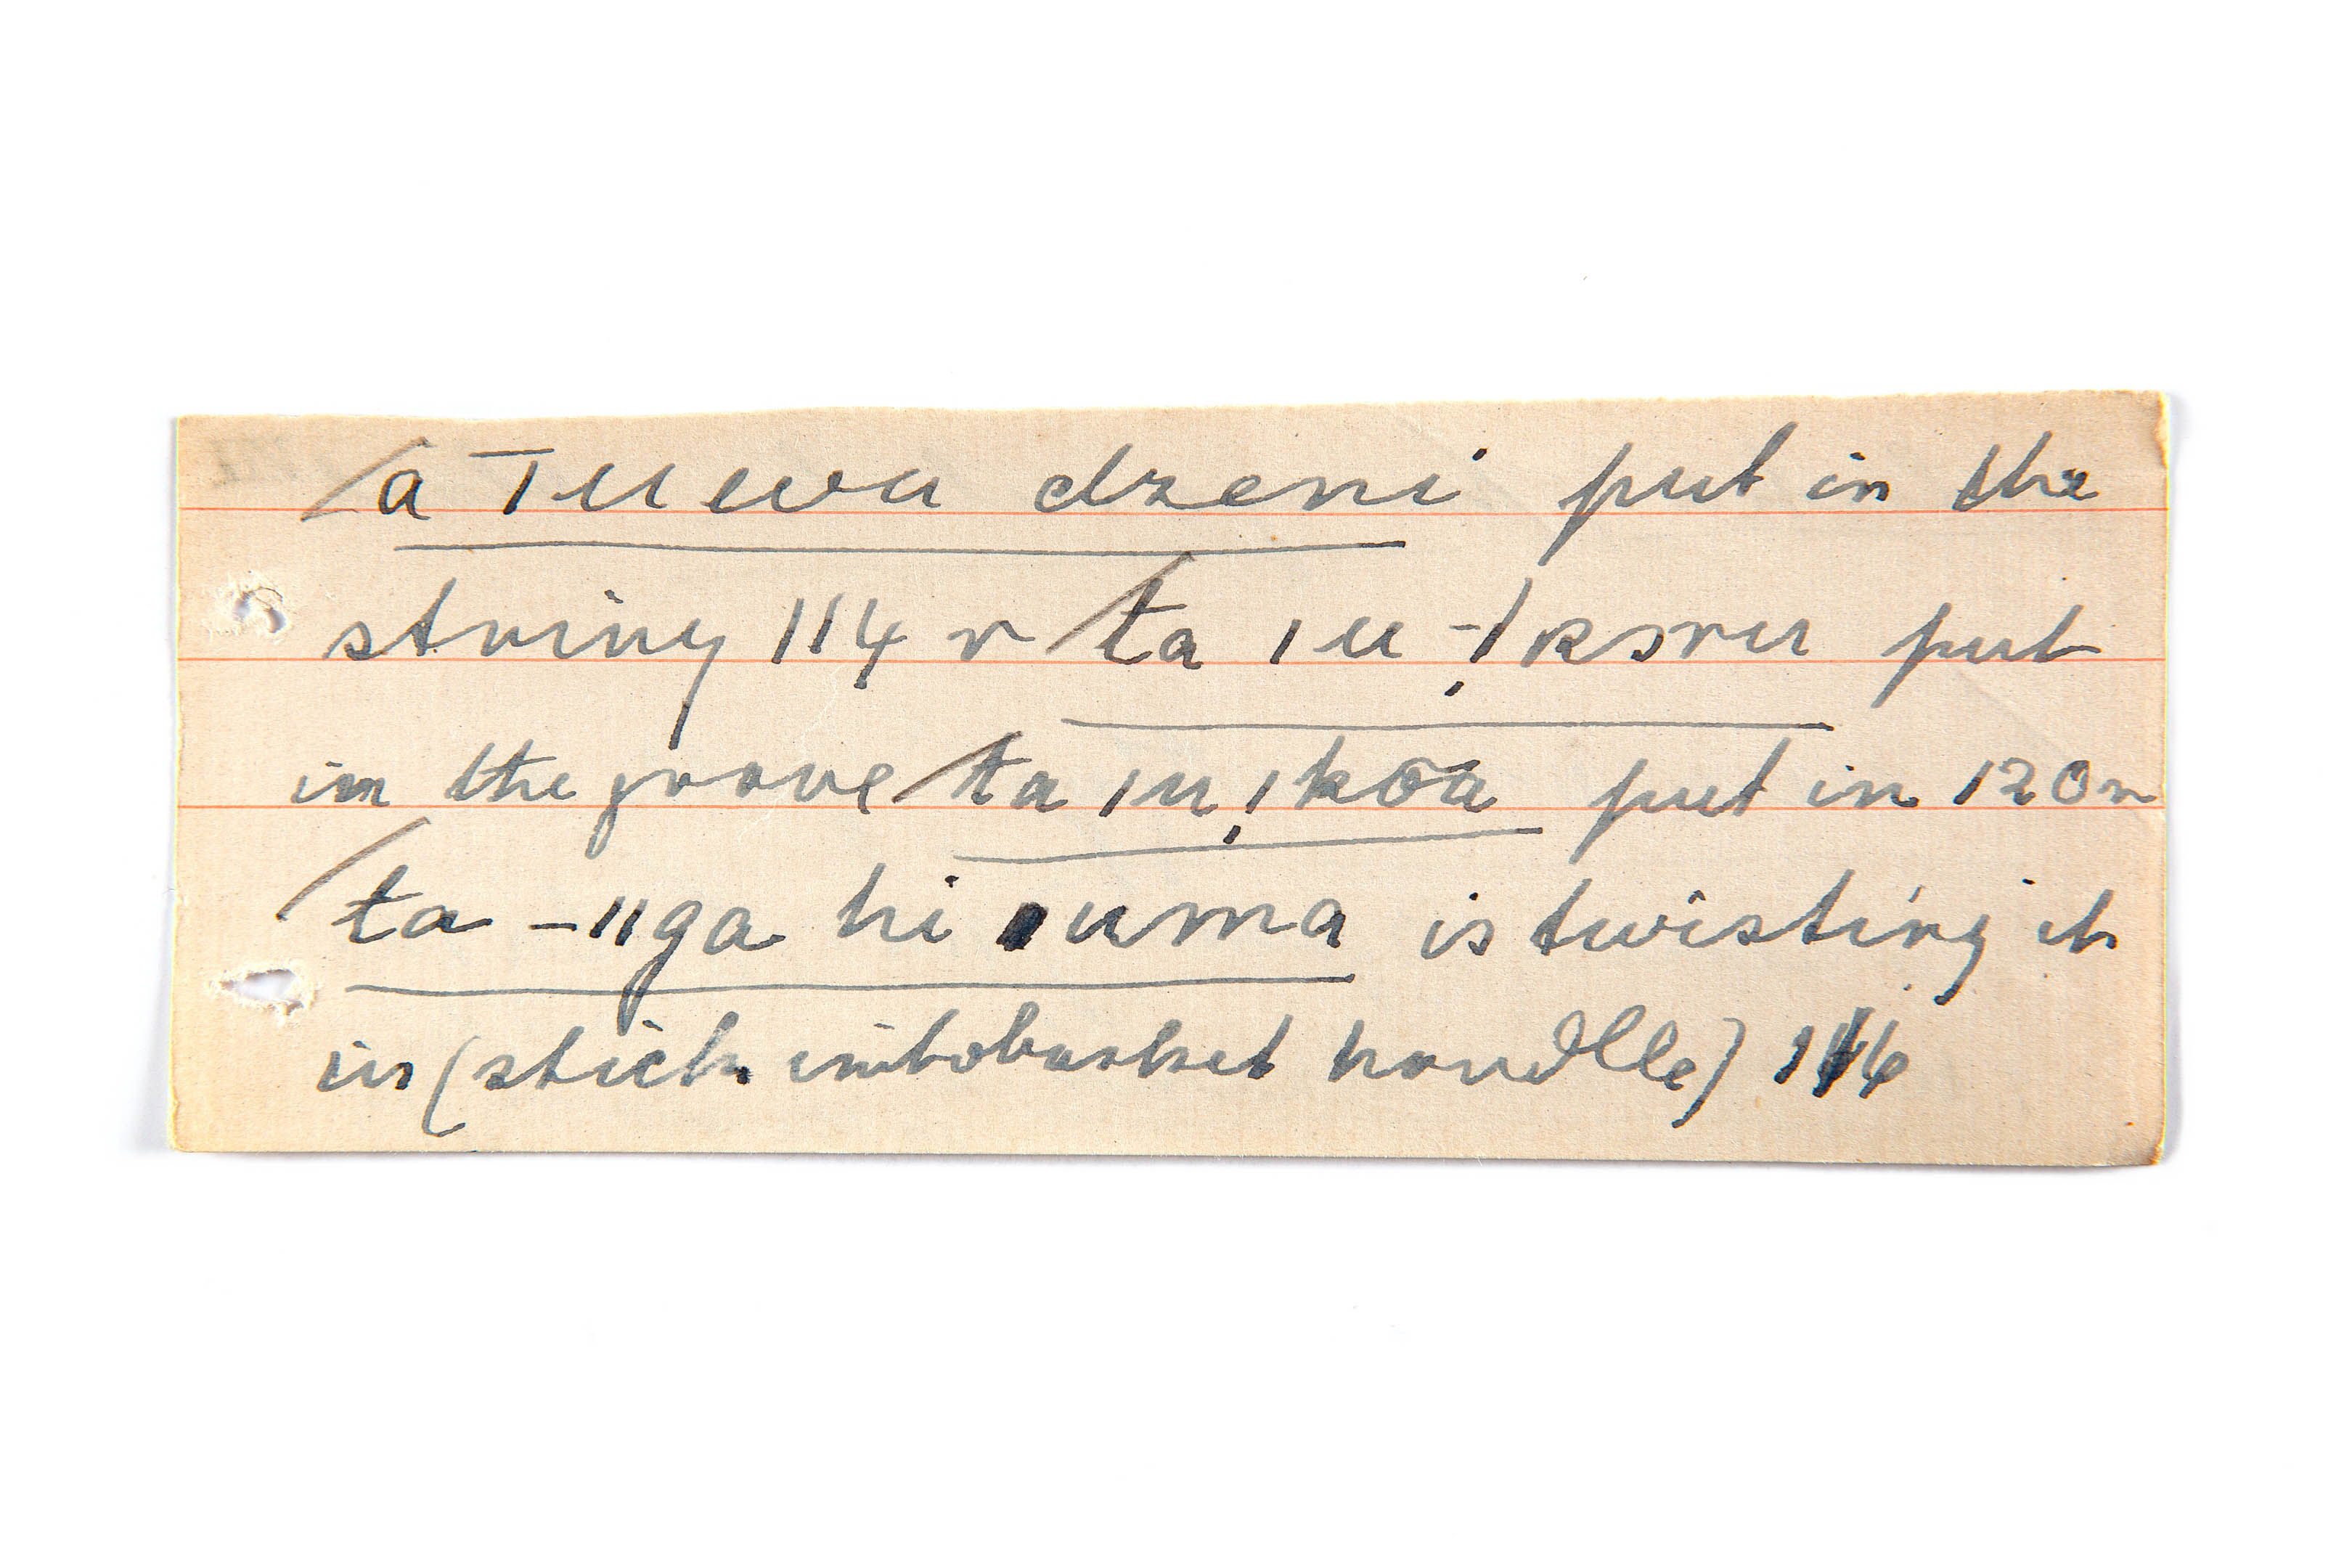 /a T u wa dzeni put in the
string 114 r /ta ı u -/ksru put
in the groove /ta ıu, ıkōa put in 120 r
/ta -ııga hi uma is twisting it
in (stick into basket handle) 116